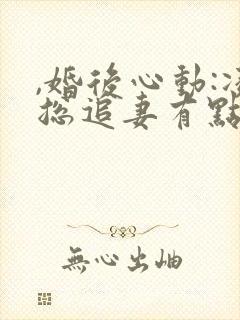 ,婚後心動:凌
總追妻有點
無心出岫